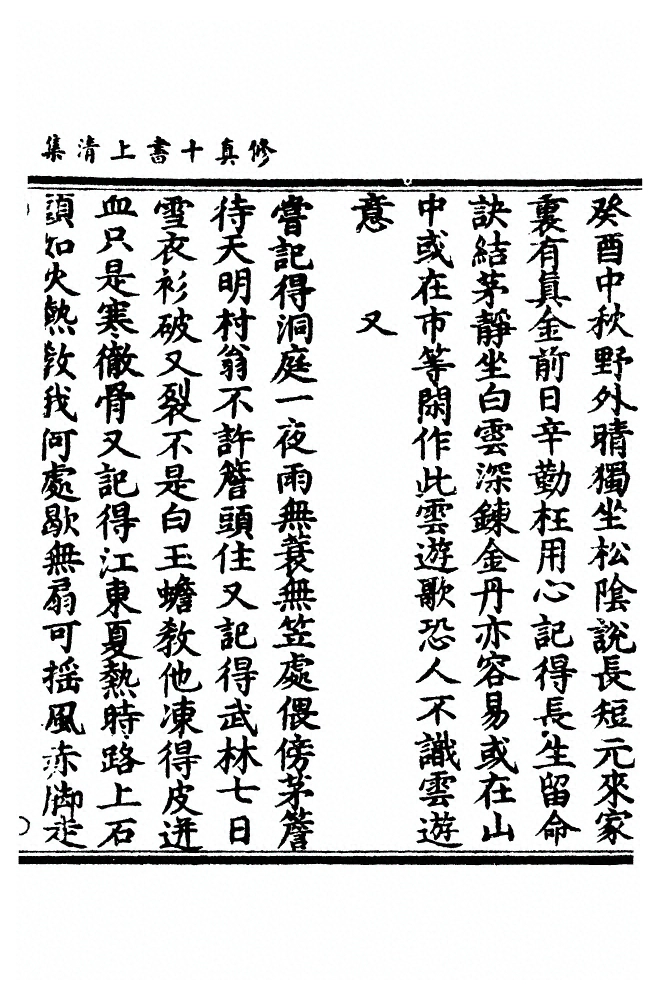 修真十書上清集
癸酉中秋野外晴獨坐松陰說長短元來家
裏有真金前日辛勤枉用心記得長生留命
訣結茅靜坐白雲深鍊金丹亦容易或在山
中或在市等閑作此雲遊歌恐人不識雲遊
意
又
嘗記得洞庭一夜雨無蓑無笠處偎傍茅簷
待天明村翁不許簷頭住又記得武林七日
雪衣衫破又裂不是白玉蟾教他凍得皮迸
血只是寒徹骨又記得江東夏熱時路上石
頭如火熱教我何處歇無扇可搖風赤脚走